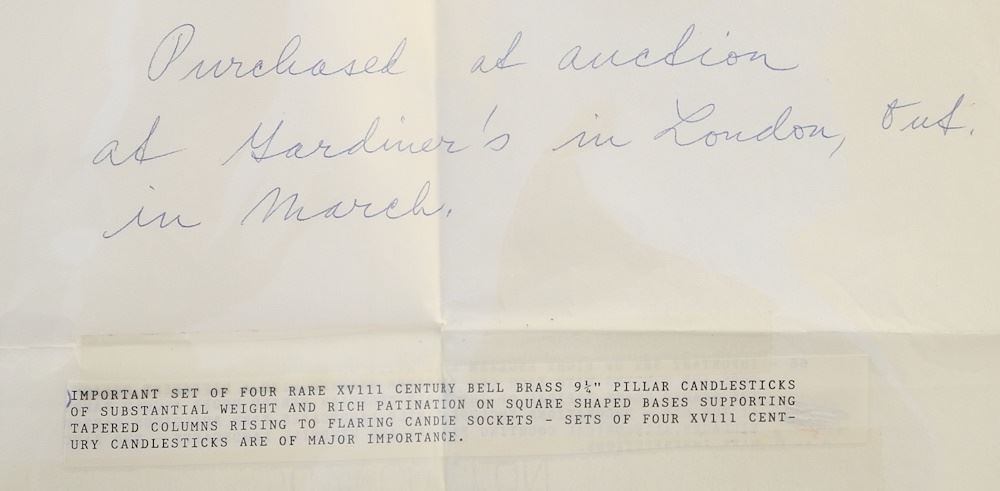 Purchased at auction
at Gardiner's in London, Ont.
in March.
IMPORTANT SET OF FOUR RARE XV111 CENTURY BELL BRASS 9¼" PILLAR CANDLESTICKS
OF SUBSTANTIAL WEIGHT AND RICH PATINATION ON SQUARE SHAPED BASES SUPPORTING
TAPERED COLUMNS RISING TO FLARING CANDLE SOCKETS - SETS OF FOUR XV111 CENT-
URY CANDLESTICKS ARE OF MAJOR IMPORTANCE.